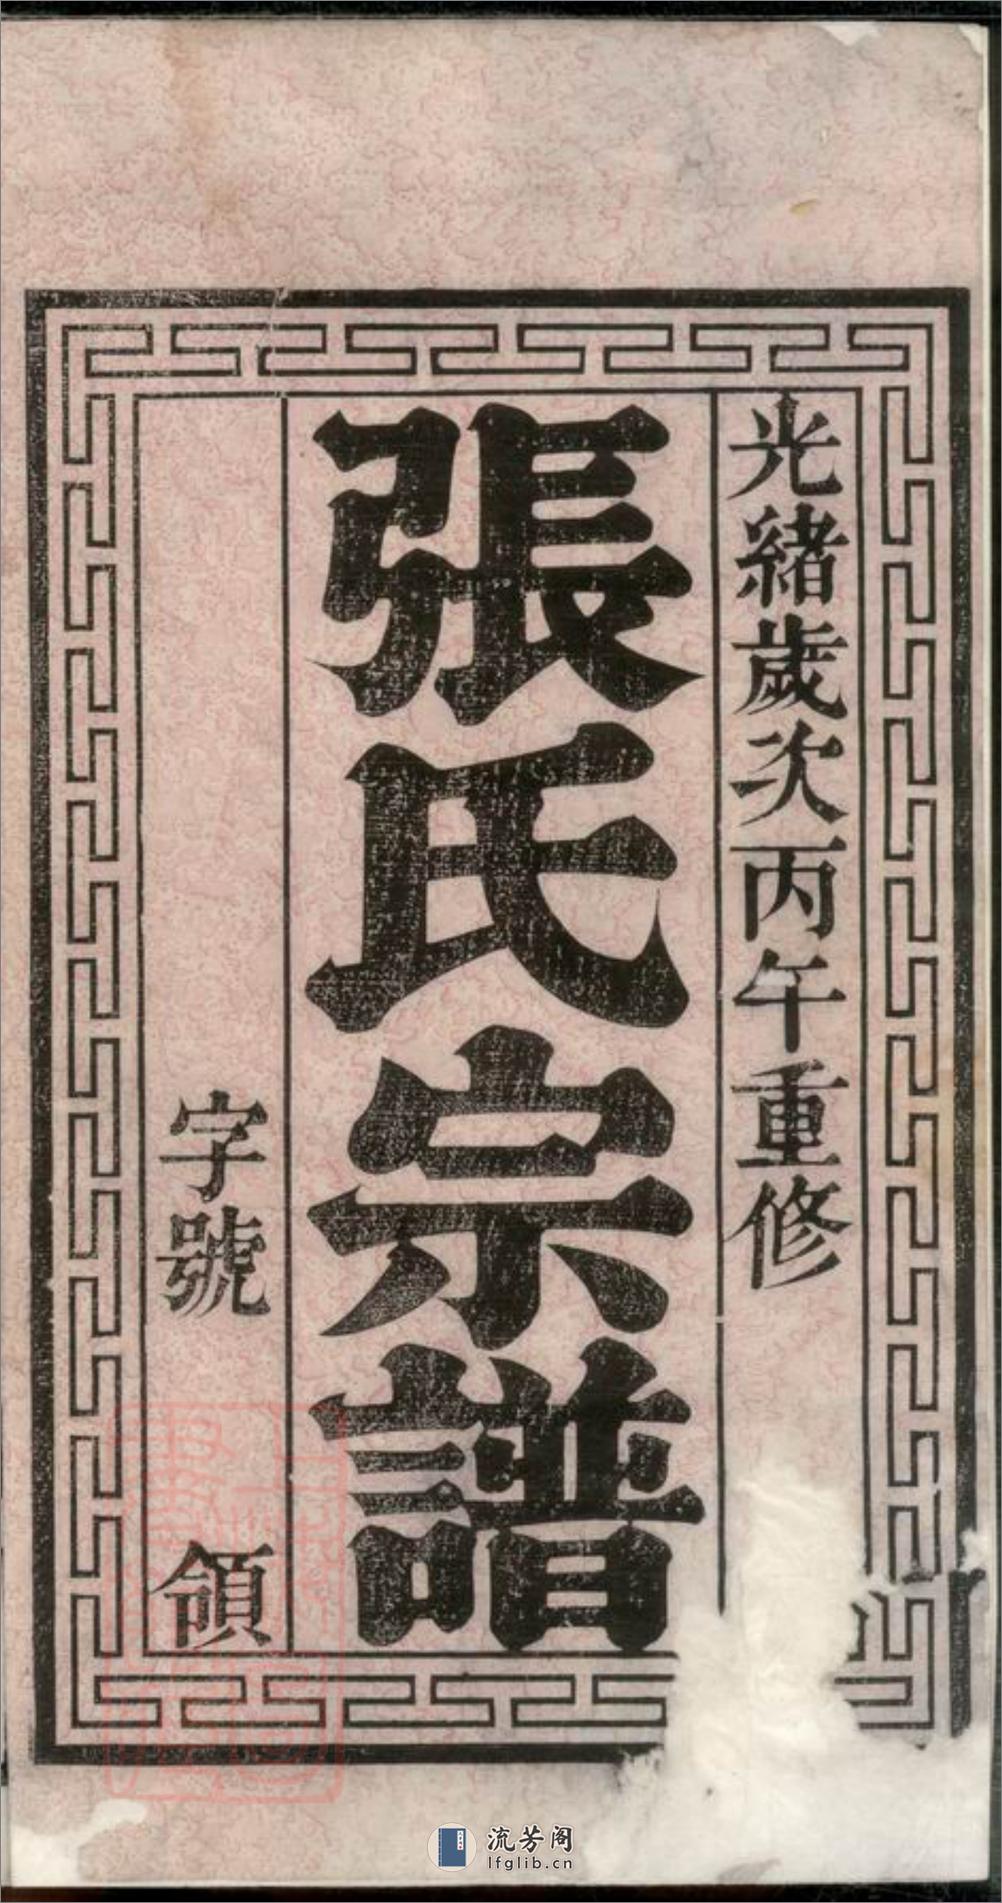 光緒歲次丙午重修
張氏宗譜
字號 領
流芳阁
lfglib.cn